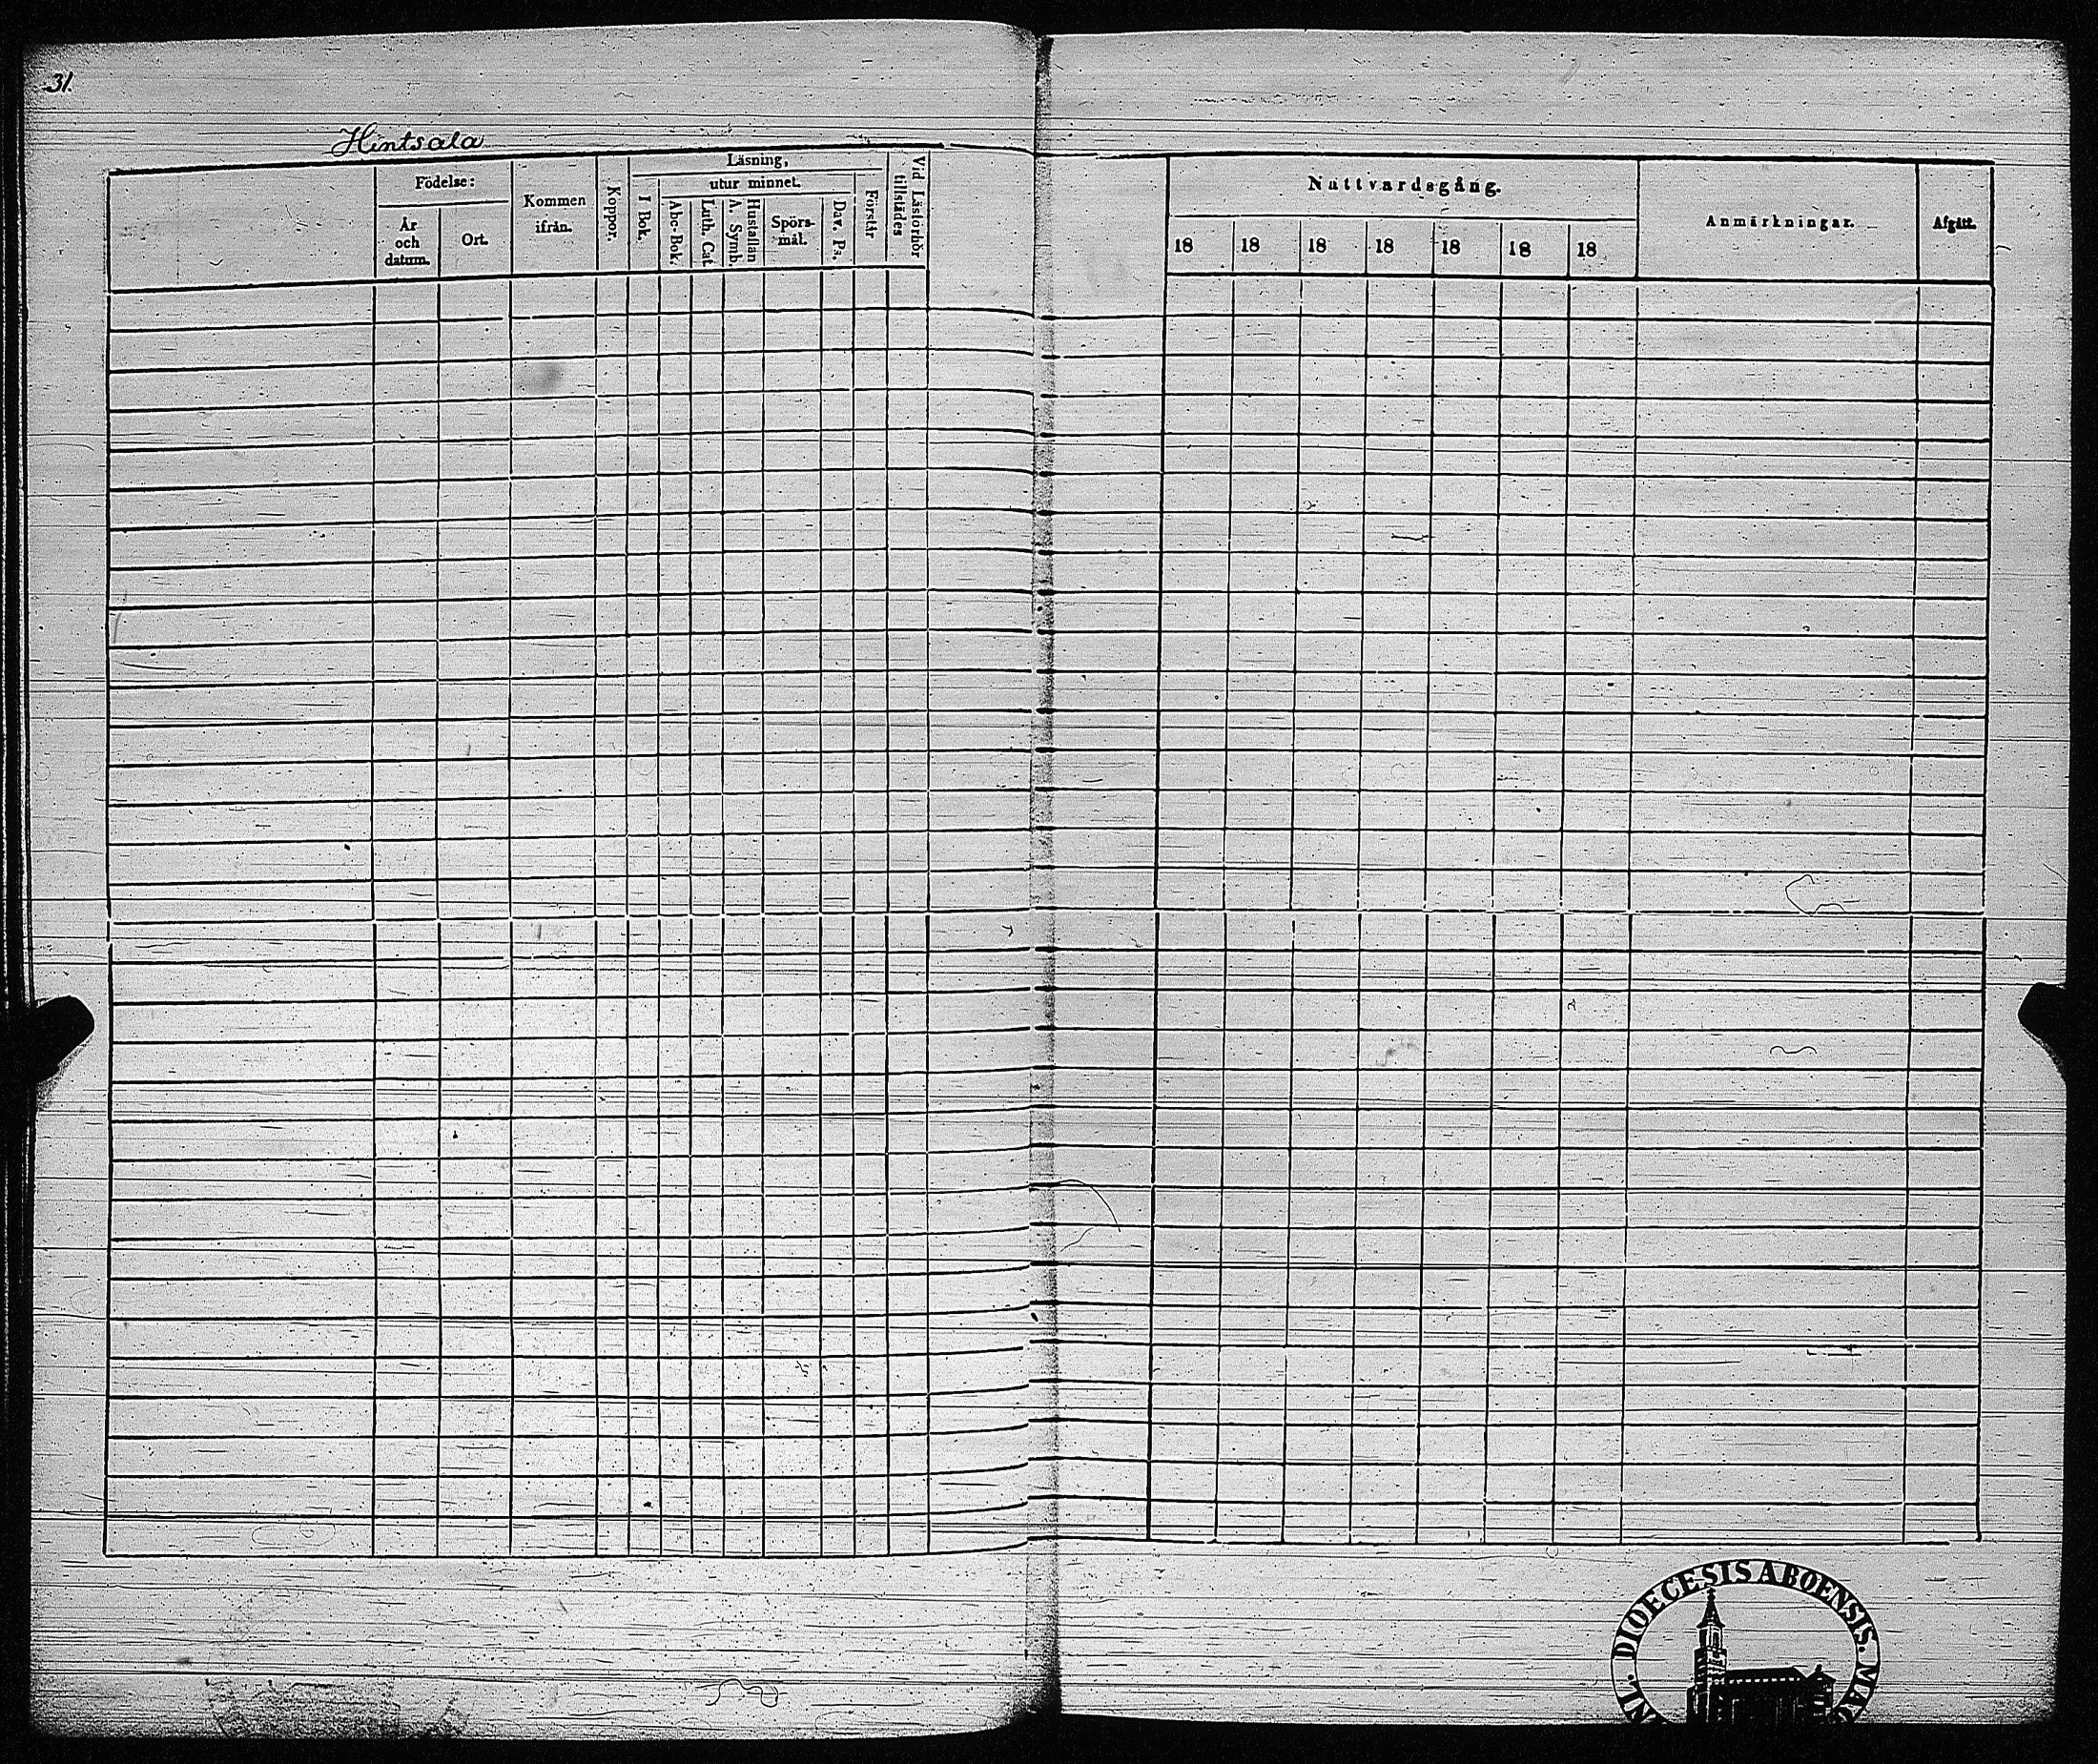 31.
Hintsala
Födelse:
År och datum.
Ort.
Kommen ifrån.
Koppor.
Läsning,
I Bok.
utur minnet.
Abc-Bok.
Luth. Cat.
Hustaflan
A. Symb.
Spörs-
mål.
Dav. Ps.
Förstår
Vid Läsförhör
tillstädes
Nattvardsgång.
18 18 18 18 18 18 18
Anmärkningar.
Afgått.
DIOECESIS ABOENSIS.